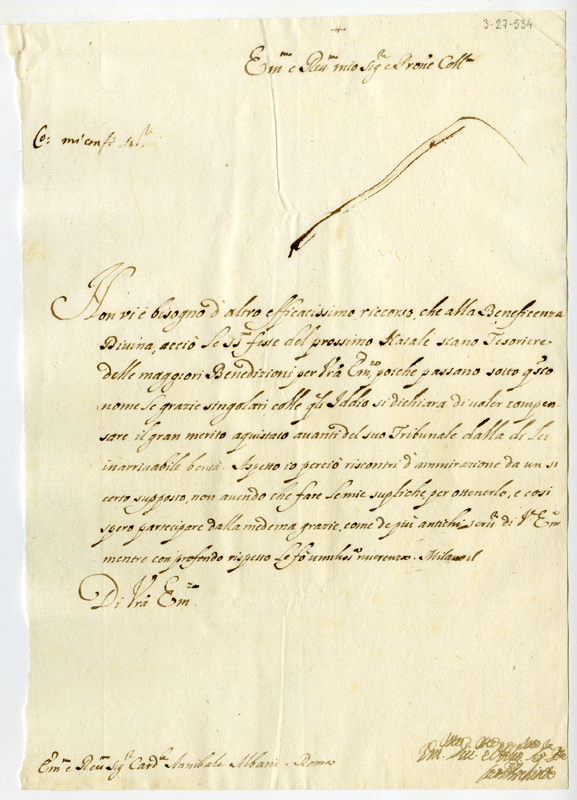 3-27-534
+
Em.mo e Reu.mo mio Sig.r e Prone Coll.mo
Co:
Non vi è bisogno d'altro efficacissimo riccorso, che alla Beneficenza
Divina, acciò le S.te feste del prossimo Natale siano Tesoriere
delle maggiori Benedizioni per Vrã Em.za, poiche passano sotto q.sto
nome le grazie singolari colle q.li Iddio si dichiara di voler compen-
sare il gran merito aquistato avanti del suo Tribunale dalla di lei
inarrivabile bontà. Aspetto io perciò riscontri d'ammirazione da un si
certo supposto, non avendo che fare le mie supliche per ottenerlo, e così
spero partecipare dalla medema grazie, come de più antichi seru.ri di V. Em.za
mentre con profondo rispetto le fò umiliss.a riuerenza. Milano il
Di Vrã Em.za
Em.mo e Reu.mo Sig.r Card.le Annibale Albani. Roma